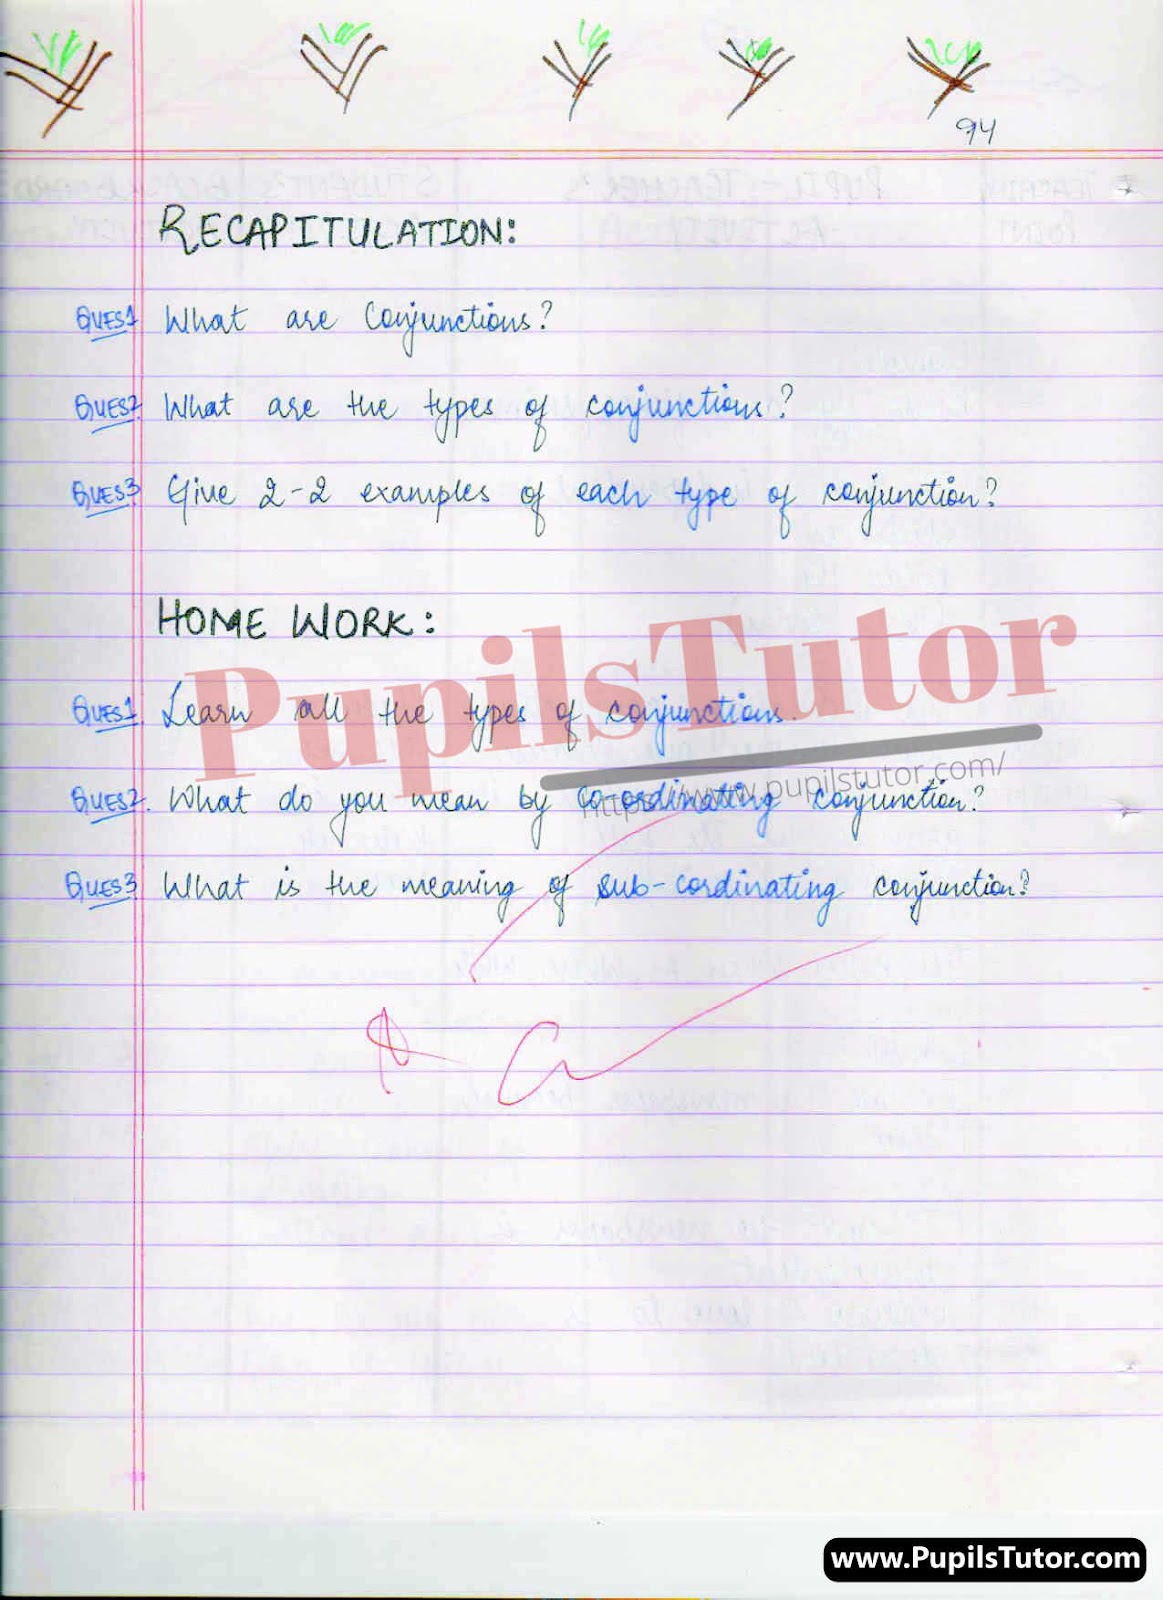 94
RECAPITULATION:
QUES1 What are Conjunctions?
QUES2. What are the types of conjunctions?
QUES3 Give 2-2 examples of each type of conjunction?
HOME WORK:
PupilsTutor
QUES1. Learn all the types of conjunctions.
https://www.pupilstutor.com/
QUES2. What do you mean by co-ordinating conjunction?
QUES3 What is the meaning of sub-cordinating conjunction?
www.PupilsTutor.com